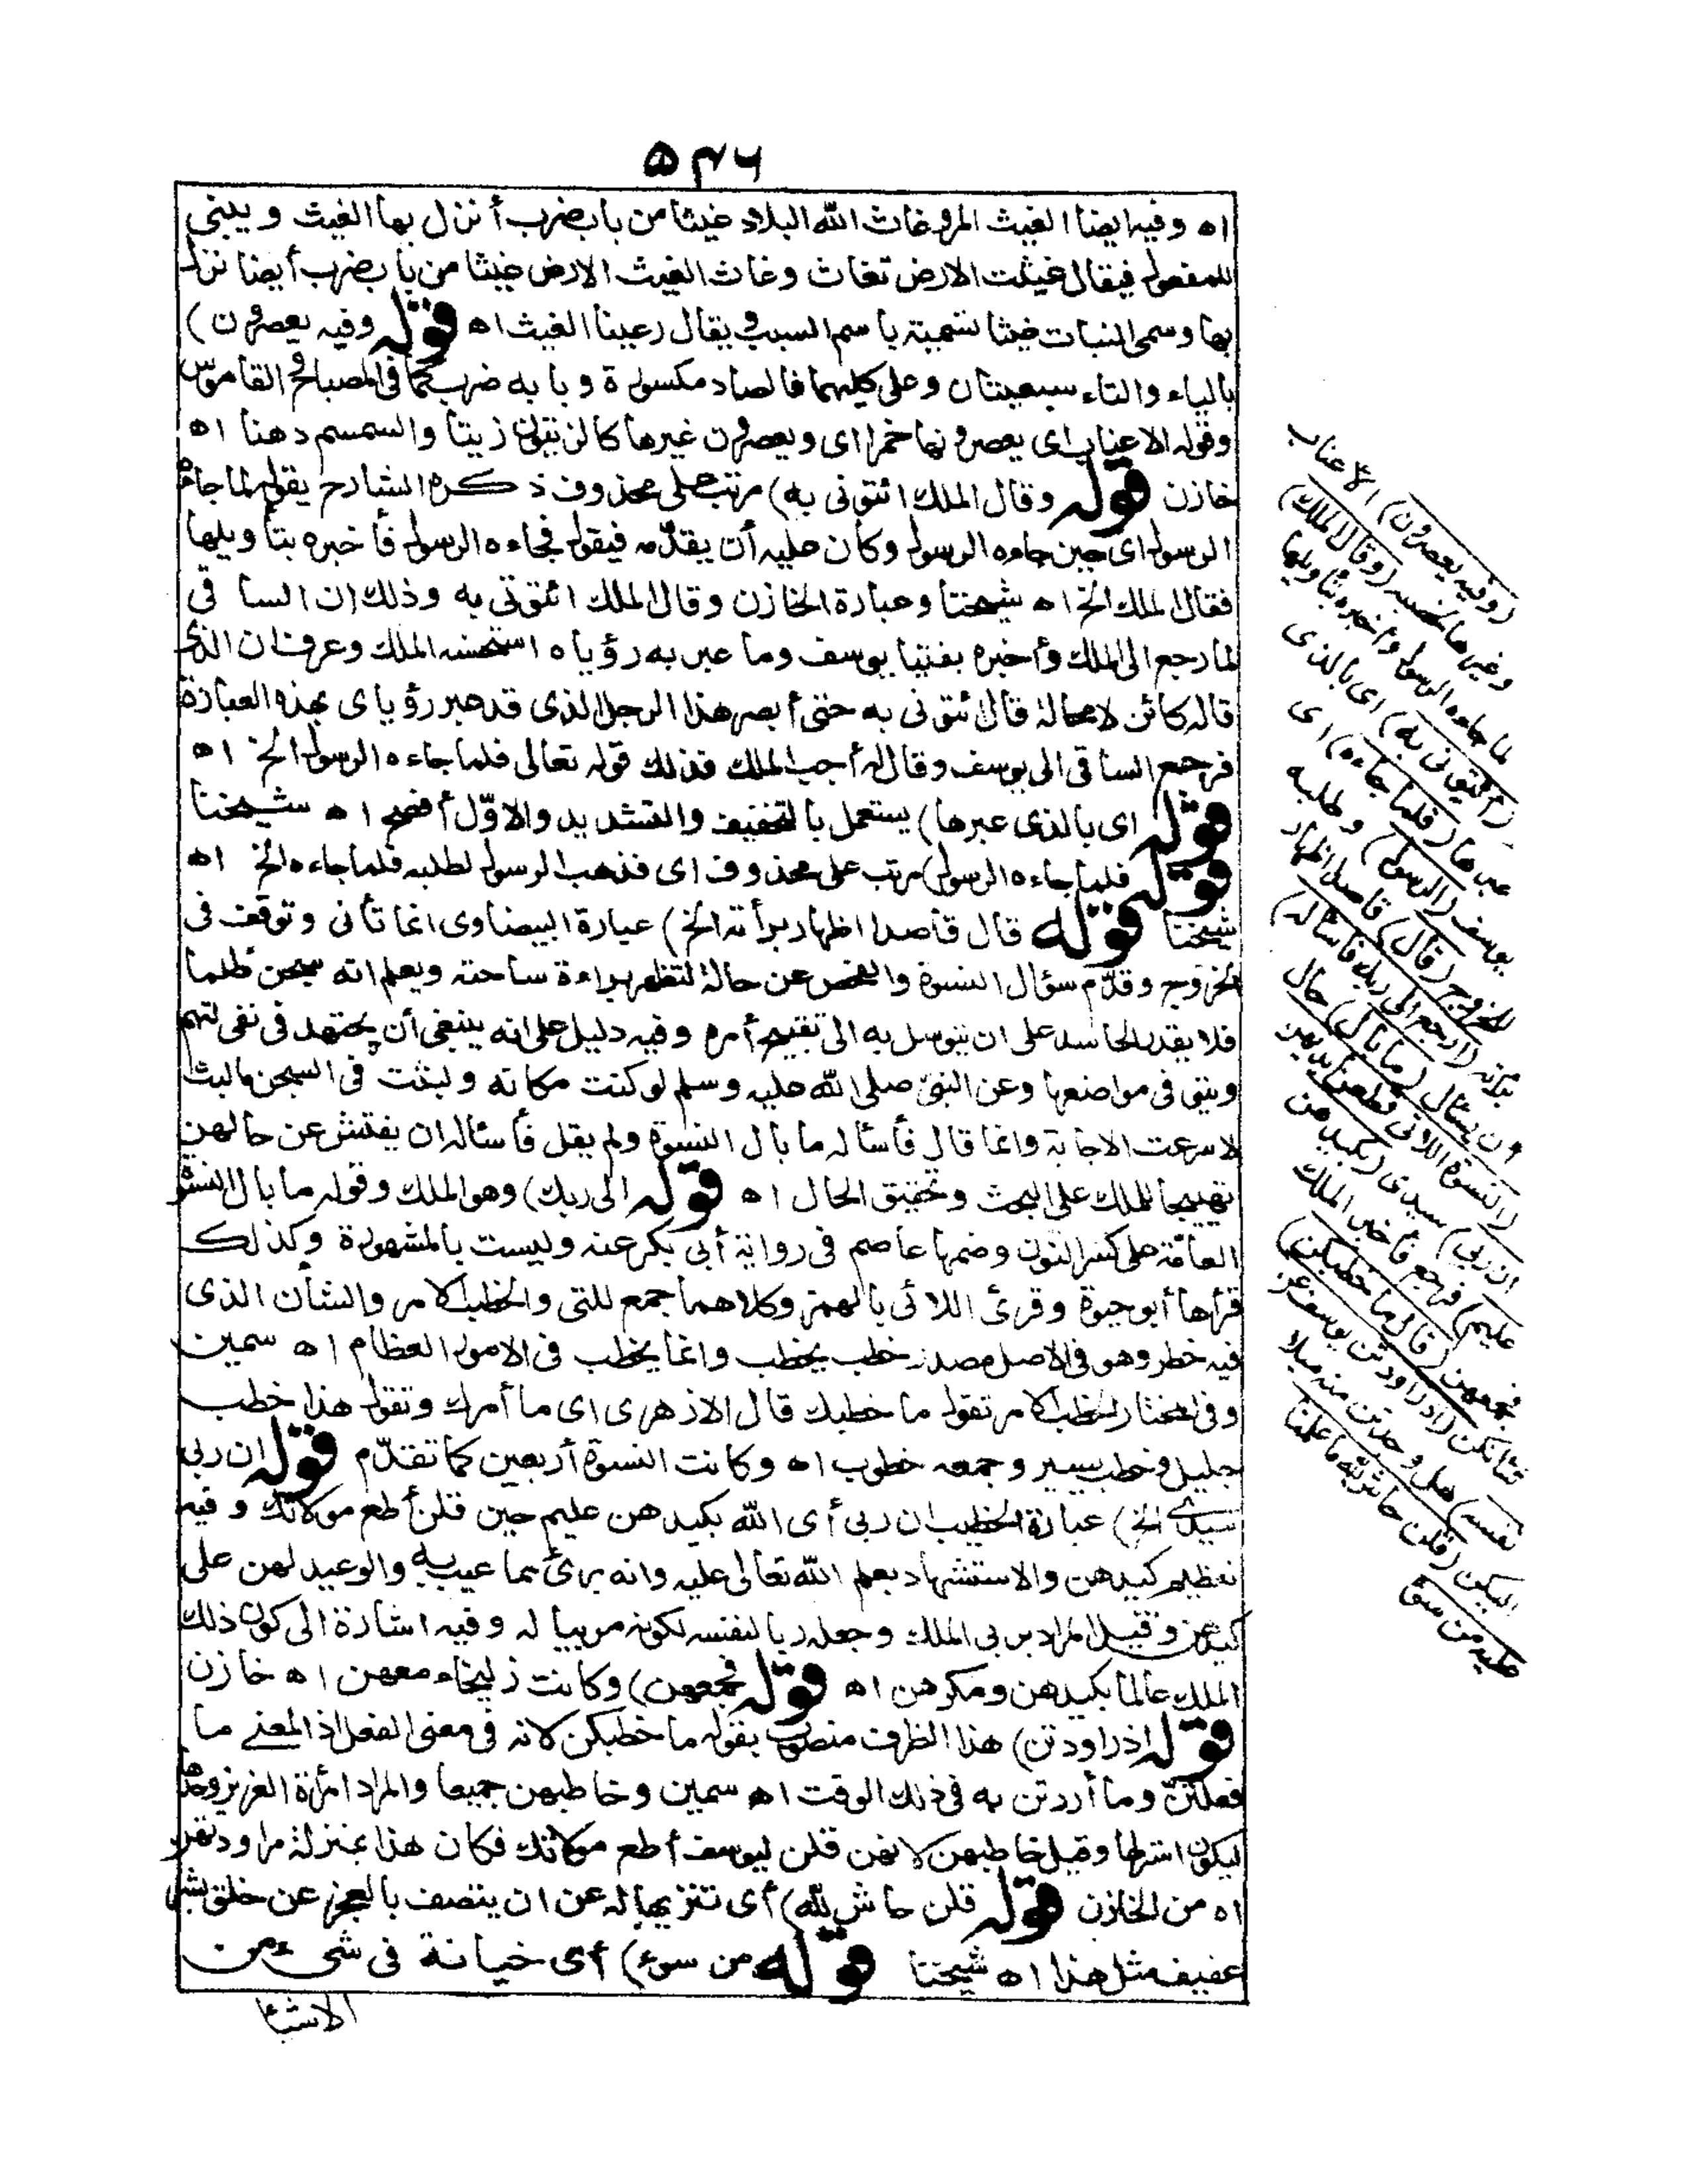 ۵۴۶
اه وفيه ايضا الغيث المطر وغاث الله البلاد غيثا من باب ضرب أنزل بها الغيث ويبنى
للمفعول فيقال غيثت الارض تغاث وغاث الغيث الارض غيثا من باب ضرب أيضا نزل
بها وسمى النبات غيثا تسمية باسم السبب ويقال رعينا الغيث اه قوله وفيه يعصرون)
بالياء والتاء سبعيتان وعلى كليهما فالصاد مكسورة وبابه ضرب كما فى المصباح والقاموس
وقوله الاعناب اى يعصرونها خمرا اى ويعصرون غيرها كالزيتون زيتا والسمسم دهنا اه
خازن قوله وقال الملك ائتونى به) مرتب على محذوف ذكره الشارح بقوله لما جاءه
الرسول اى حين جاءه الرسول وكان عليه أن يقدّمه فيقول فجاءه الرسول فأخبره بتأويلها
فقال الملك الخ اه شيخنا وعبارة الخازن وقال الملك ائتونى به وذلك ان الساقى
لما رجع الى الملك وأخبره بفتيا يوسف وما عبر به رؤياه استحسنه الملك وعرف ان الذى
قاله كائن لا محالة قال ائتونى به حتى أبصر هذا الرجل الذى قد عبر رؤياى بهذه العبارة
فرجع الساقى الى يوسف وقال له أجب الملك فذلك قوله تعالى فلما جاءه الرسول الخ اه
قوله اى بالذى عبرها) يستعمل بالتخفيف والتشديد والاوّل أفصح اه شيخنا
قوله فلما جاءه الرسول) مرتب على محذوف اى فذهب الرسول لطلبه فلما جاءه الخ اه
شيخنا قوله قال قاصدا اظهار برأته الخ) عبارة البيضاوى انما تأنى وتوقف فى
الخروج وقدّم سؤال النسوة والفحص عن حاله لتظهر براءة ساحته ويعلم انه سجن ظلما
فلا يقدر الحاسد على ان يتوسل به الى تقبيح أمره وفيه دليل على انه ينبغى أن يجتهد فى نفى التهم
ويتقى فى مواضعها وعن النبىّ صلى الله عليه وسلم لو كنت مكانه ولبثت فى السجن ما لبث
لاسرعت الاجابة وانما قال فأسأله ما بال النسوة ولم يقل فأسأله ان يفتش عن حالهن
تهييجا للملك على البحث وتحقيق الحال اه قوله الى ربك) وهو الملك وقوله ما بال النسوة
العامّة على كسر النون وضمها عاصم فى رواية أبى بكر عنه وليست بالمشهورة وكذلك
قرأها أبو حيوة وقرئ اللائى بالهمز وكلاهما جمع للتى والخطب الامر والشأن الذى
فيه خطر وهو فى الاصل مصدر خطب يخطب وانما يخطب فى الامور العظام اه سمين
وفى المختار الخطب الامر تقول ما خطبك قال الازهرى اى ما أمرك وتقول هذا خطب
جليل وخطب يسير وجمعه خطوب اه وكانت النسوة أربعين كما تقدّم قوله ان ربى
سيدى الخ) عبارة الخطيب ان ربى أى الله بكيدهن عليم حين قلن أطع مولاتك وفيه
تعظيم كيدهن والاستشهاد بعلم الله تعالى عليه وانه برئ مما عيب به والوعيد لهن على
كيدهن وقيل المراد بربى الملك وجعله ربا لنفسه لكونه مربيا له وفيه اشارة الى كون ذلك
الملك عالما بكيدهن ومكرهن اه قوله فجمعهن) وكانت زليخاء معهن اه خازن
قوله اذ راودتن) هذا الظرف منصوب بقوله ما خطبكن لانه فى معنى الفعل اذ المعنى ما
فعلتنّ وما أردتن به فى ذلك الوقت اه سمين وخاطبهن جميعا والمراد امرأة العزيز وحدها
ليكون استر لها وقيل خاطبهن لانهن قلن ليوسف أطع مولاتك فكان هذا بمنزلة مراودتهن
اه من الخازن قوله قلن حاش لله) أى تنزيها له عن ان يتصف بالعجز عن خلق بشر
عفيف مثل هذا اه شيخنا قوله من سوء) أى خيانة فى شىء من
الاشياء
(وفيه يعصرون) الاعناب
وغيرها لخصبه (وقال الملك)
لما جاءه الرسول وأخبره بتأويلها
(ائتونى به) اى بالذى
عبرها (فلما جاءه) اى
يوسف (الرسول) وطلبه
للخروج (قال) قاصدا اظهار
برأته (ارجع الى ربك فاسأله)
أن يسأل (ما بال) حال
(النسوة اللاتى قطعن أيديهن
ان ربى) سيدى (بكيدهن
عليم) فرجع فأخبر الملك
فجمعهن (قال ما خطبكن)
شأنكن (اذ راودتن يوسف عن
نفسه) هل وجدتن منه ميلا
اليكن (قلن حاش لله ما علمنا
عليه من سوء